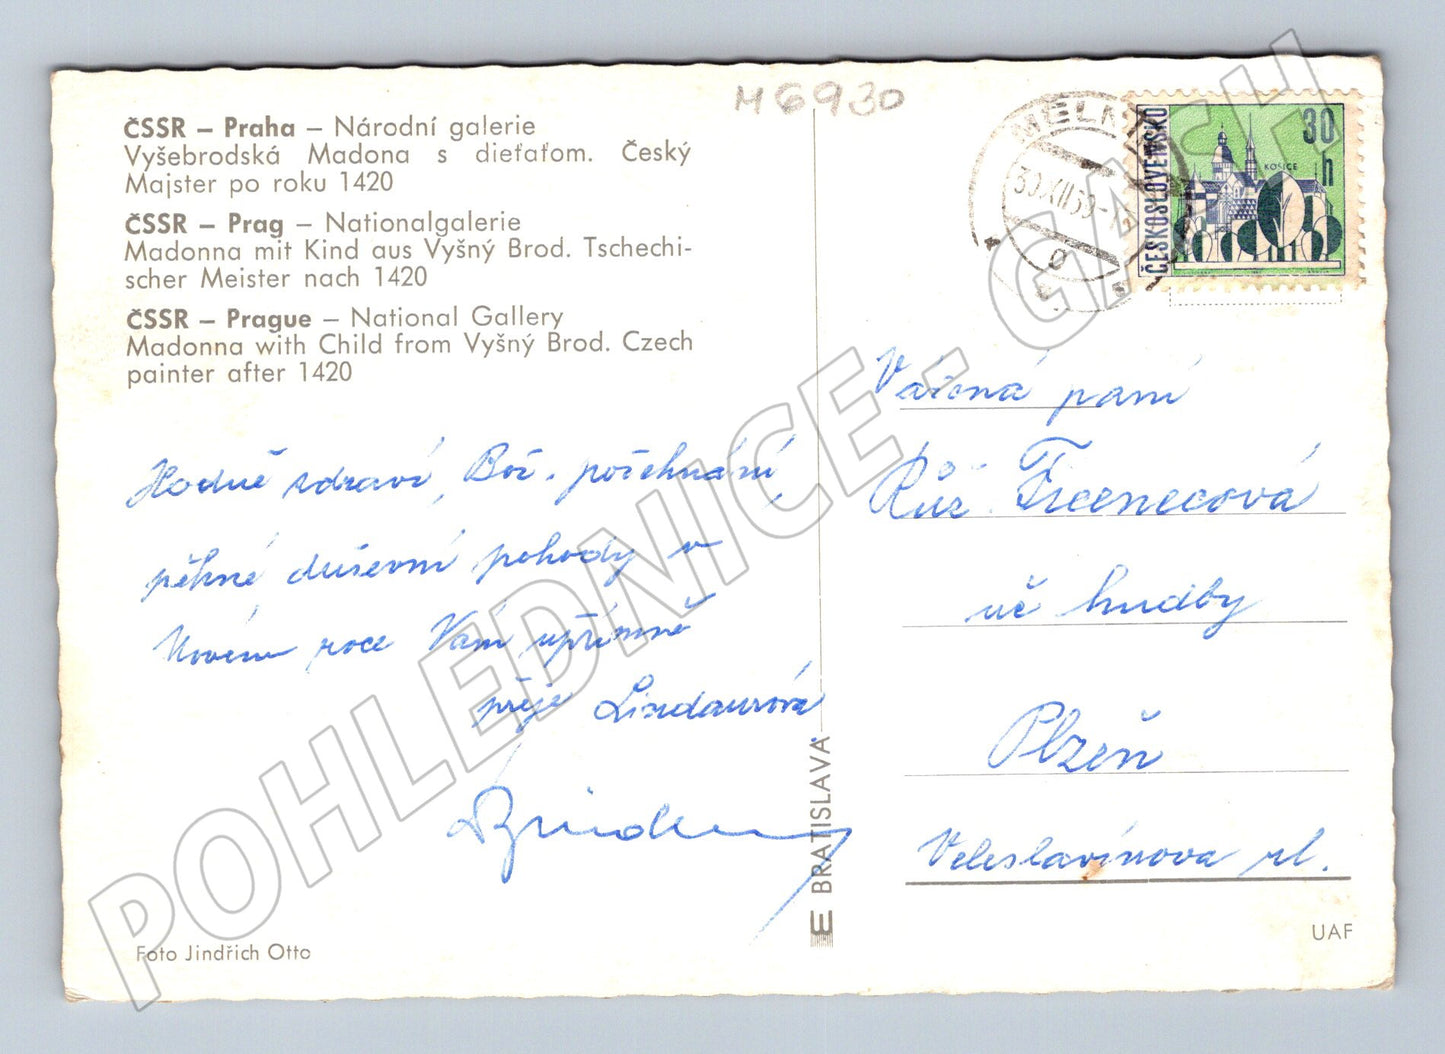 M 6930
ČSSR – Praha – Národní galerie
Vyšebrodská Madona s dieťaťom. Český
Majster po roku 1420
ČSSR – Prag – Nationalgalerie
Madonna mit Kind aus Vyšný Brod. Tschechi-
scher Meister nach 1420
ČSSR – Prague – National Gallery
Madonna with Child from Vyšný Brod. Czech
painter after 1420
Hodně zdraví, Bož. požehnání,
pěkné duševní pohody v
Novém roce Vám upřímně
přeje Lindaurová
Foto Jindřich Otto
E BRATISLAVA
MĚLN
30.XII.69
ČESKOSLOVENSKO
30 h
KOŠICE
Vážená paní
Růž.
uč hudby
Plzeň
Veleslavínova ul.
UAF
POHLEDNICE - GASH